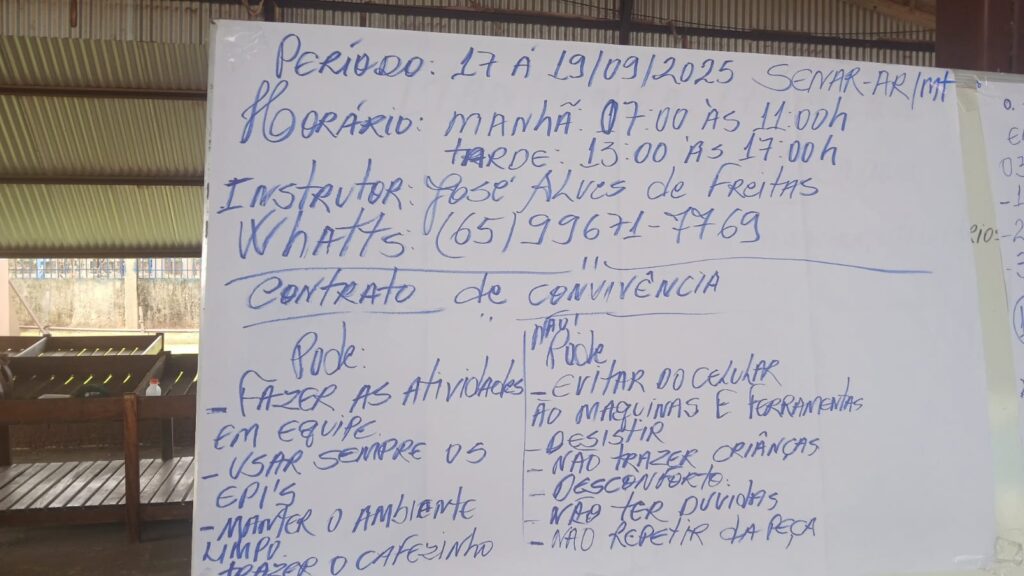 PERÍODO: 17 À 19/09/2025 SENAR-AR/MT
HORÁRIO: MANHÃ: 07:00 ÀS 11:00h
TARDE: 13:00 ÀS 17:00h
INSTRUTOR: José Alves de Freitas
Whatts: (65) 99671-7769
CONTRATO de CONVIVÊNCIA
Pode:
- FAZER AS ATIVIDADES
EM EQUIPE.
- USAR SEMPRE OS
EPI'S
- MANTER O AMBIENTE
LIMPO.
- TRAZER O CAFEZINHO
NÃO!
Pode
- EVITAR DO CELULAR
ÀO MAQUINAS E FERRAMENTAS
- DESISTIR
- NÃO TRAZER CRIÂNÇAS
- DESCONFORTO.
- NÃO TER DUVIDAS
- NÃO REPETIR DA PEÇA
03
-1
RIOS -2